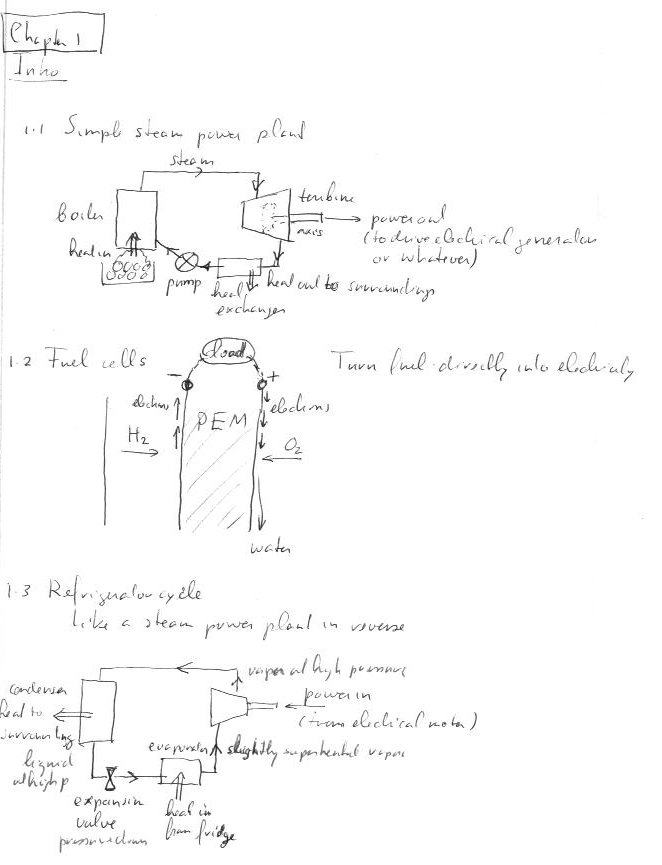 Chapter 1
Intro
1.1 Simple steam power plant
steam
boiler
turbine
power out
axis
(to drive electrical generator
or whatever)
heat in
pump
heat
exchanger
heat out to surroundings
1.2 Fuel cells
load
Turn fuel directly into electricity
- +
electrons
electrons
PEM
H2
O2
water
1.3 Refrigerator cycle
Like a steam power plant in reverse
vapor at high pressure
condenser
heat to
surrounding
power in
(from electrical motor)
liquid
at high p
evaporator
slightly superheated vapor
expansion
valve
pressure down
heat in
from fridge